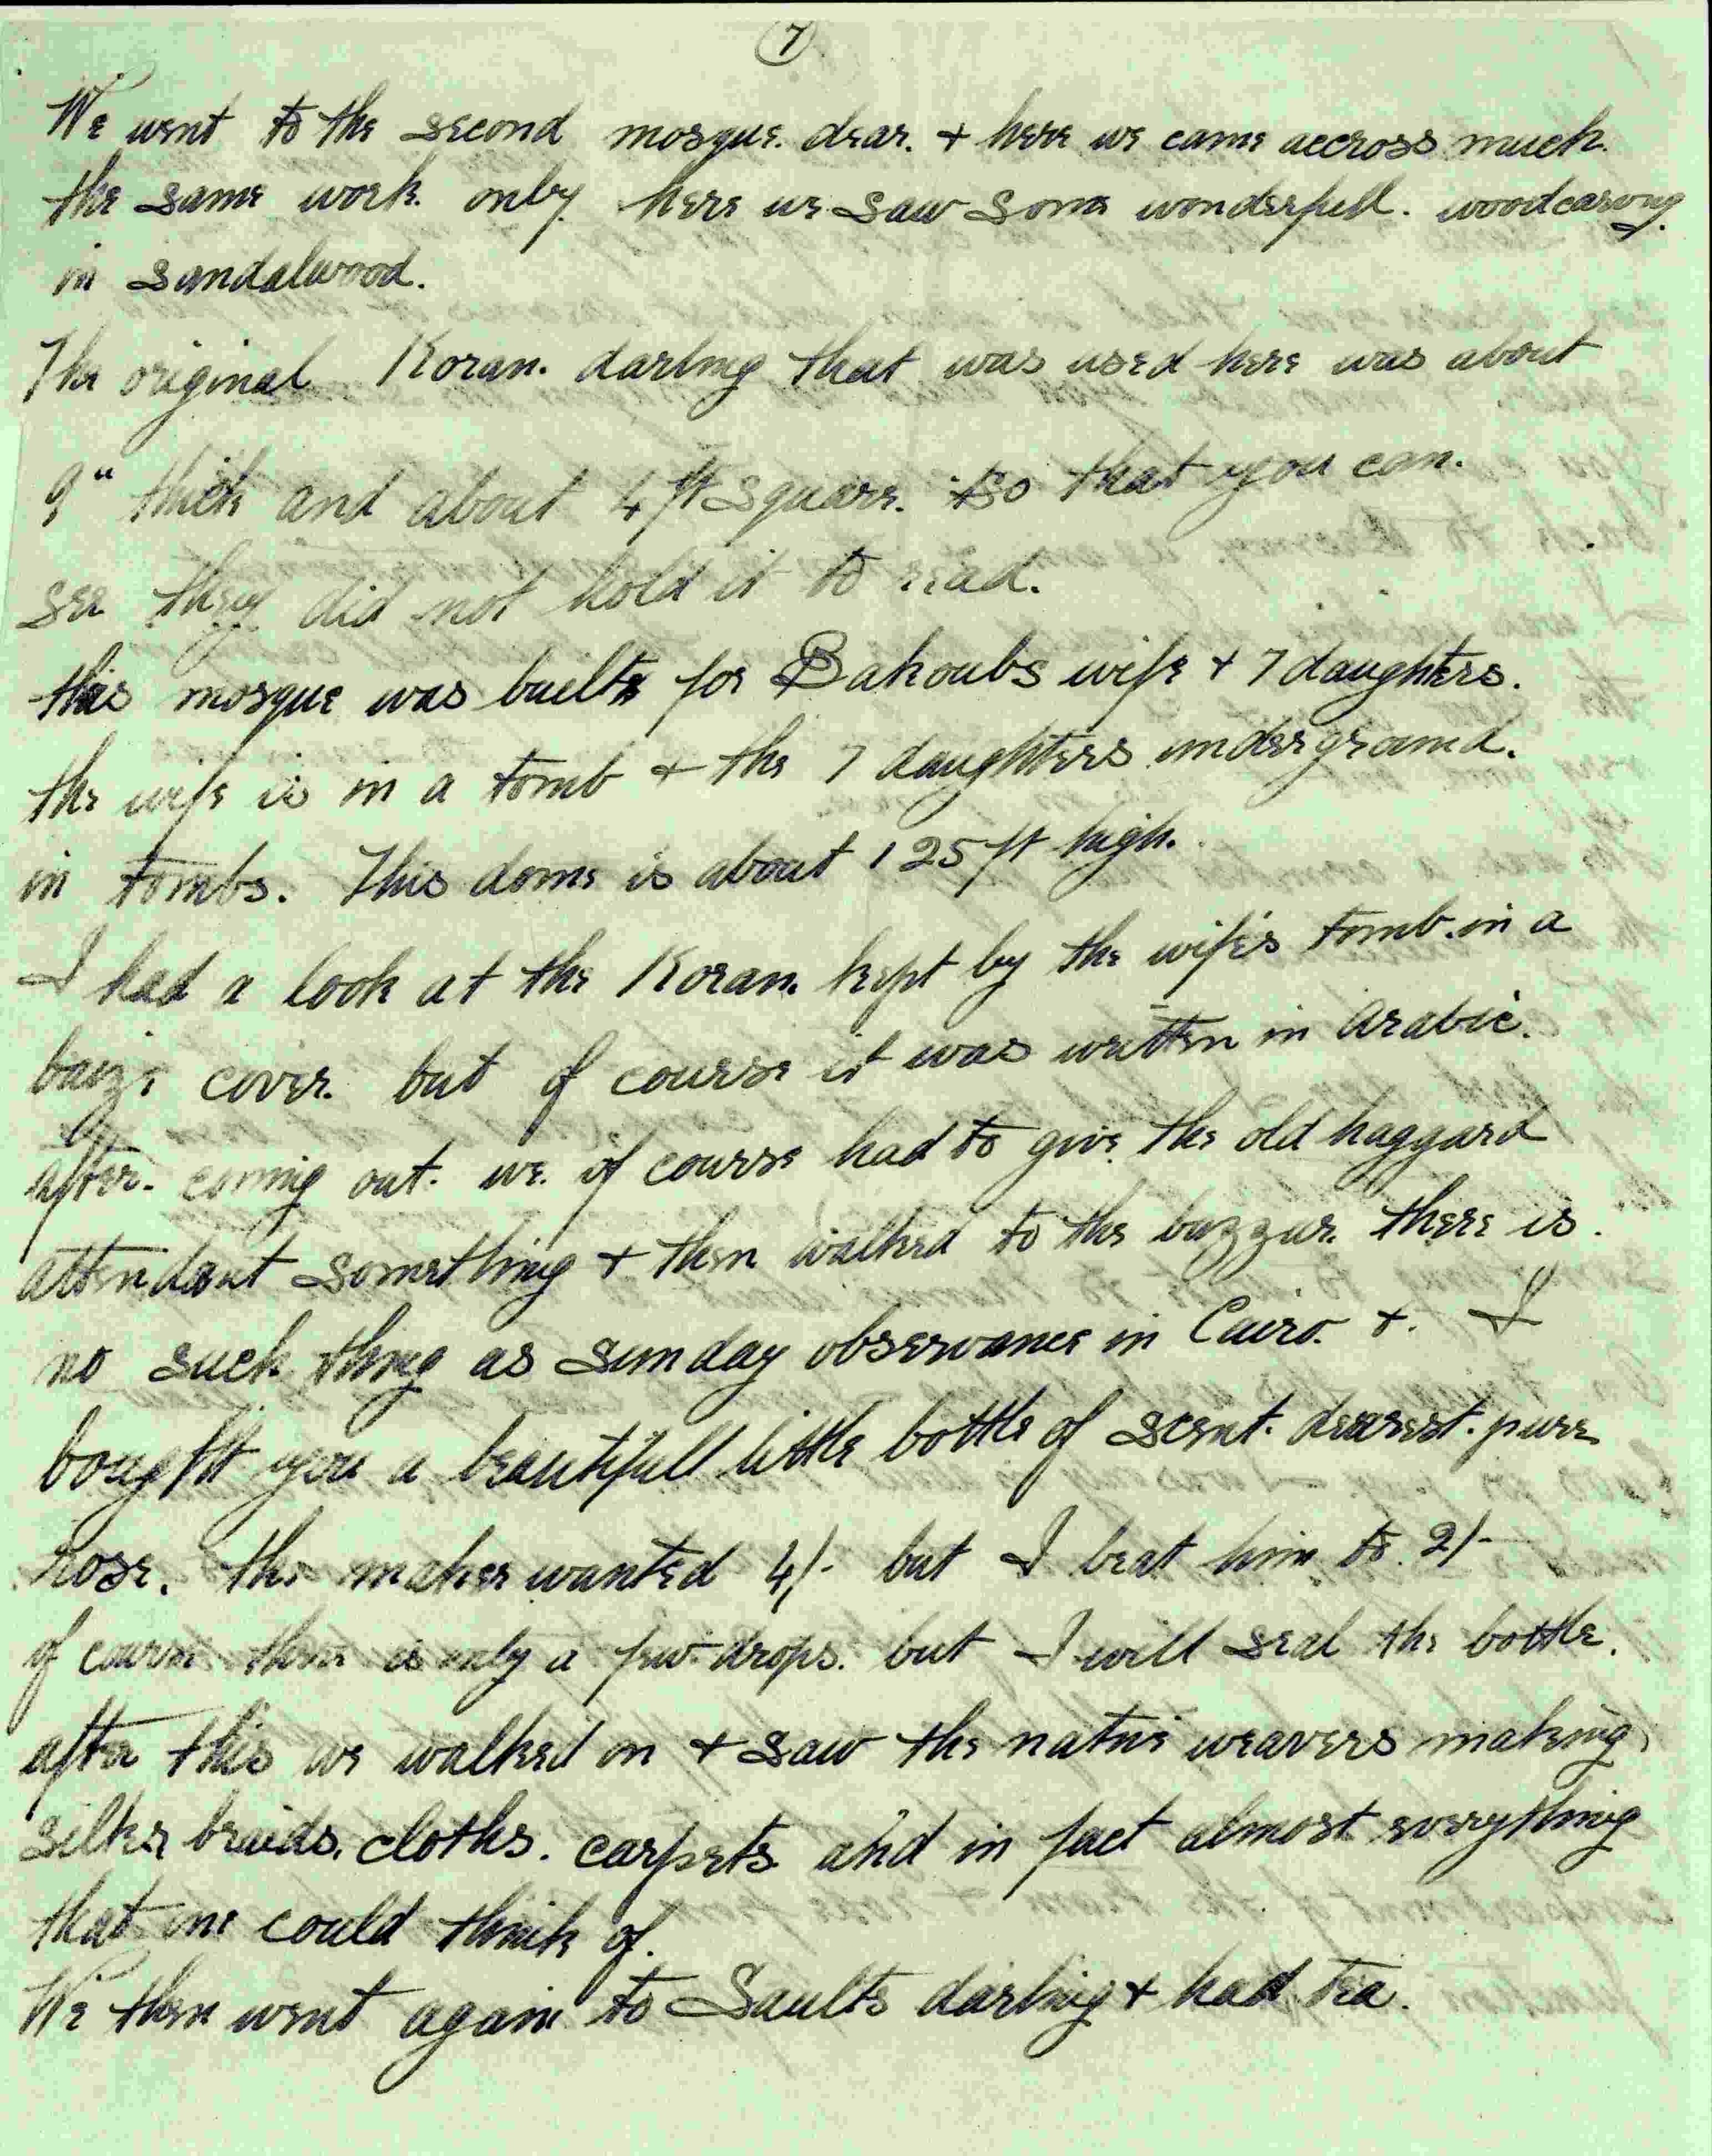 7
We went to the second mosque. dear. + here we came accross much.
the same work. only. here we saw some wonderfull. woodcarving.
in sandalwood.
The original Koran. darling that was used here was about
9" thick and about 4 ft square. so that you can.
see they did not hold it to read.
this mosque was built for Bakoubs wife + 7 daughters.
the wife is in a tomb + the 7 daughters underground.
in tombs. This dome is about 125 ft high.
I had a look at the Koran. kept by the wife's tomb. in a
baize cover. but of course it was written in arabic.
after. coming out. we. of course had to give. the old haggard
attendant something + then walked to the bazzar. there is.
no such thing as sunday observance in Cairo. +. I
bought you a beautifull little bottle of scent. dearest. pure
rose. the maker wanted 4/- but I beat him to. 2/-
of course there is only a few drops. but I will seal the bottle.
after this we walked on + saw the native weavers making
silks, braids. cloths. carpets and in fact almost everything
that one could think of.
We then went again to Saults darling + had tea.